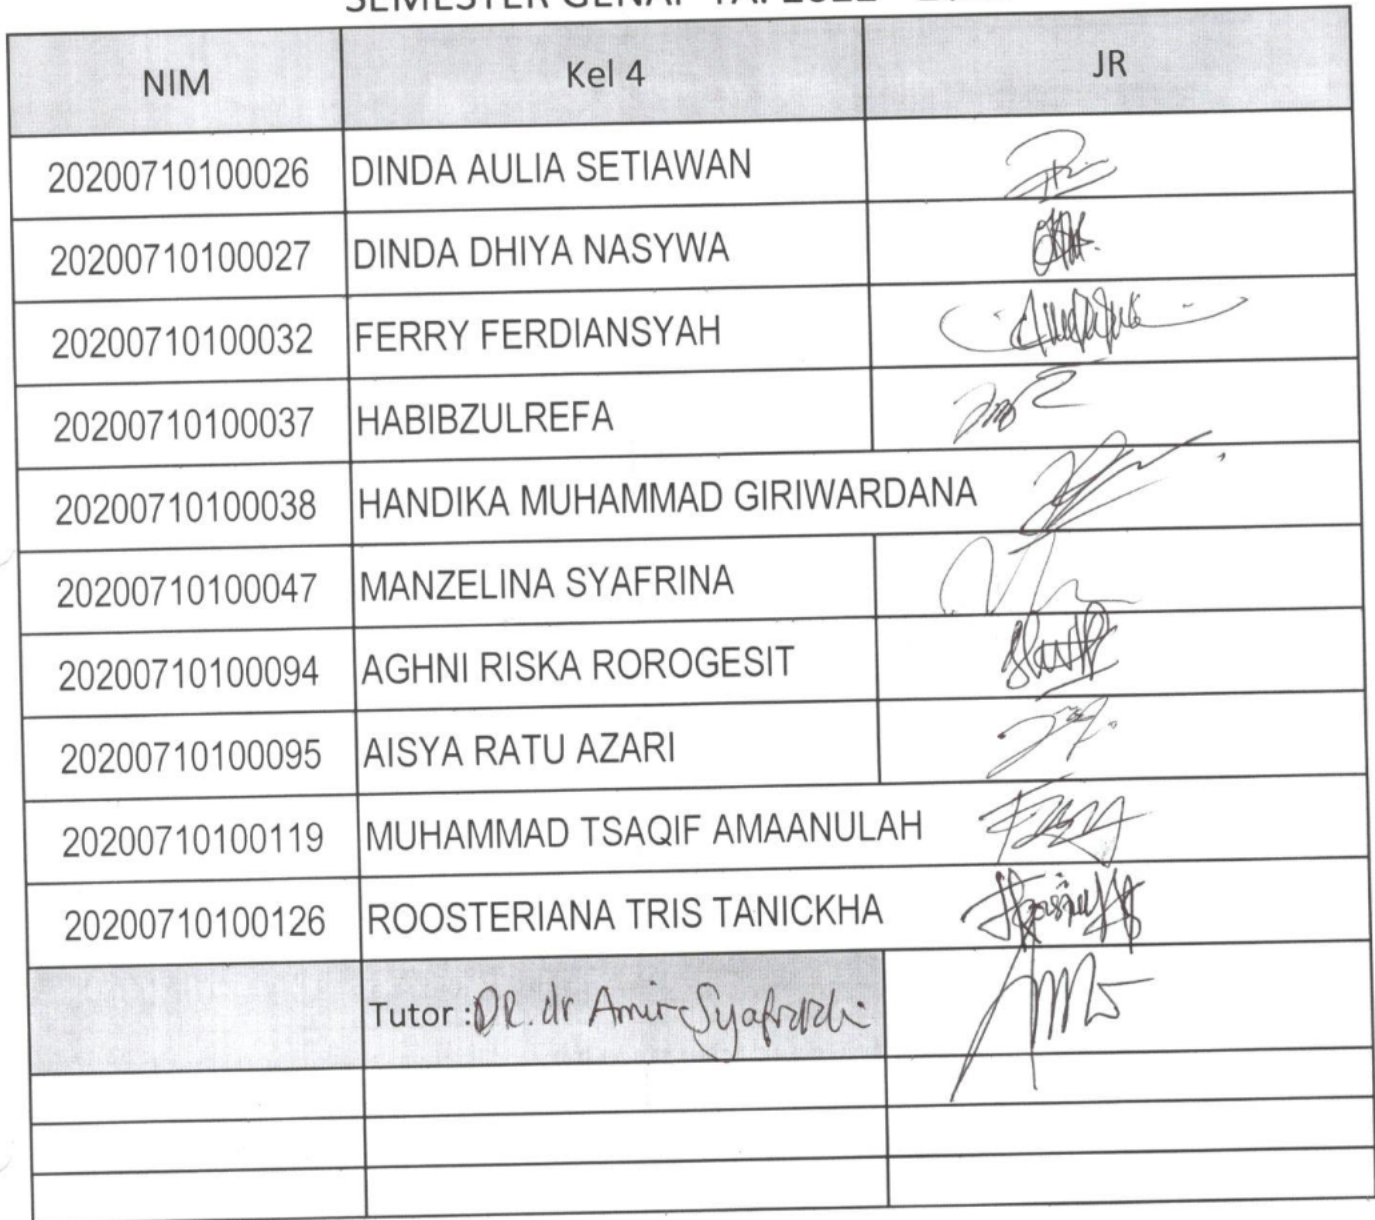 SEMESTER GENAP TA. 2022
NIM Kel 4 JR
20200710100026 DINDA AULIA SETIAWAN
20200710100027 DINDA DHIYA NASYWA
20200710100032 FERRY FERDIANSYAH
20200710100037 HABIBZULREFA
20200710100038 HANDIKA MUHAMMAD GIRIWARDANA
20200710100047 MANZELINA SYAFRINA
20200710100094 AGHNI RISKA ROROGESIT
20200710100095 AISYA RATU AZARI
20200710100119 MUHAMMAD TSAQIF AMAANULAH
20200710100126 ROOSTERIANA TRIS TANICKHA
Tutor : DR. dr Amir